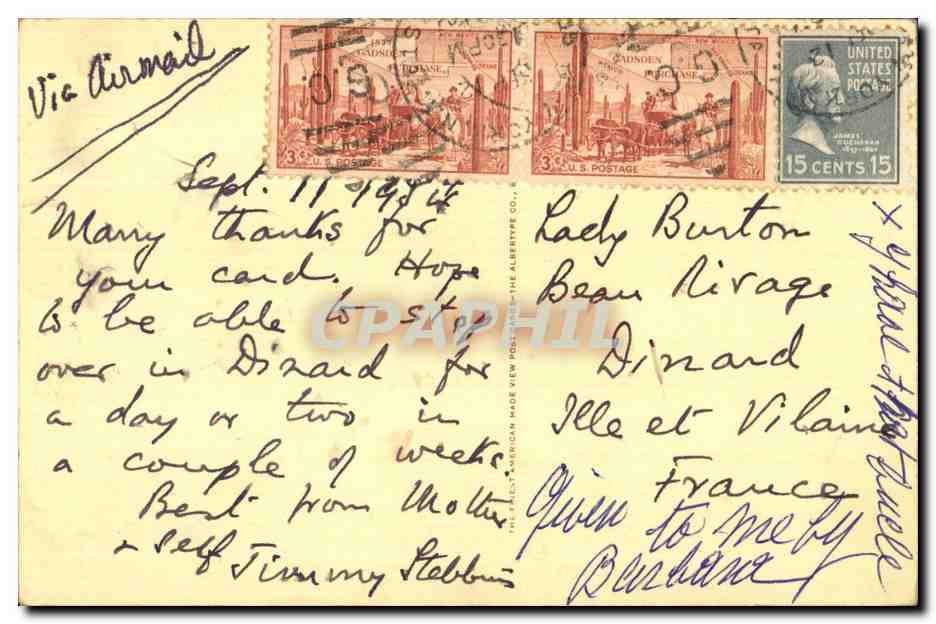 Via Airmail
1853
GADSDEN
PURCHASE
3¢
U.S. POSTAGE
GADSDEN
PURCHASE
3¢
U.S. POSTAGE
UNITED
STATES
POSTAGE
JAMES
BUCHANAN
1857-1861
15 CENTS 15
Sept. 11 1954
Many thanks for
your card. Hope
to be able to stop
over in Dinard for
a day or two in
a couple of weeks.
Best from Mother
+ self Jimmy Stebbins
THE FINEST AMERICAN MADE VIEW POST CARDS—THE ALBERTYPE CO., B
Lady Burton
Beau Rivage
Dinard
Ille et Vilaine
France
Given to me by
Barbara
x y
CPAPHIL